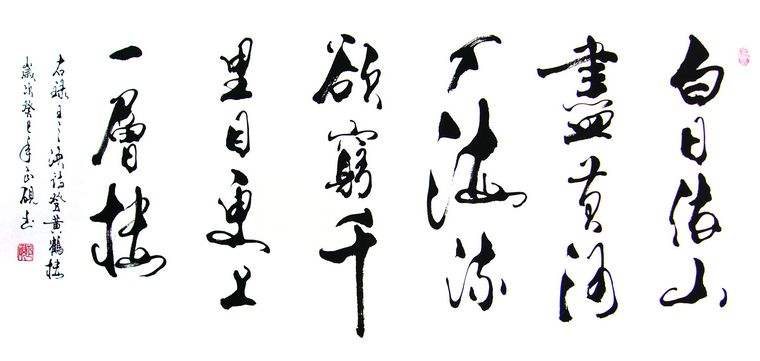 白日依山
盡黄河
入海流
欲窮千
里目更上
一層樓
右録王之渙詩登黄鶴楼
歲次癸巳年